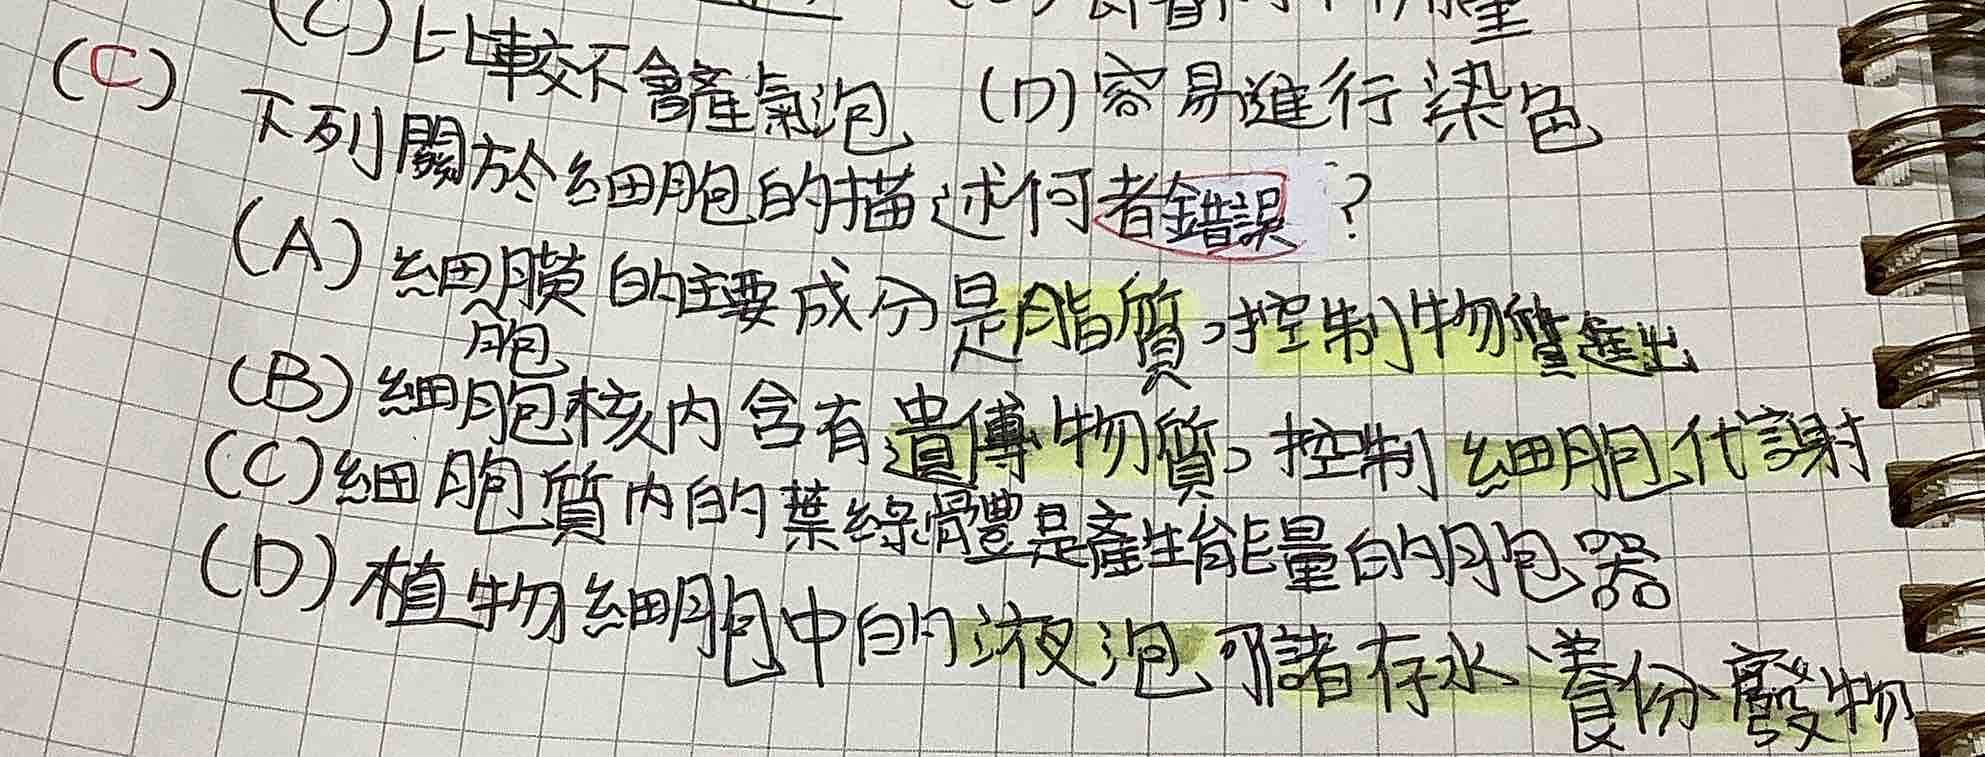 (C) 比較不會產氣泡 (D) 容易進行染色
(C) 下列關於細胞的描述何者錯誤?
(A) 細胞膜的主要成分是脂質，控制物質進出
(B) 細胞核內含有遺傳物質，控制細胞代謝
(C) 細胞質內的葉綠體是產生能量的胞器
(D) 植物細胞中的液泡可儲存水、養份、廢物